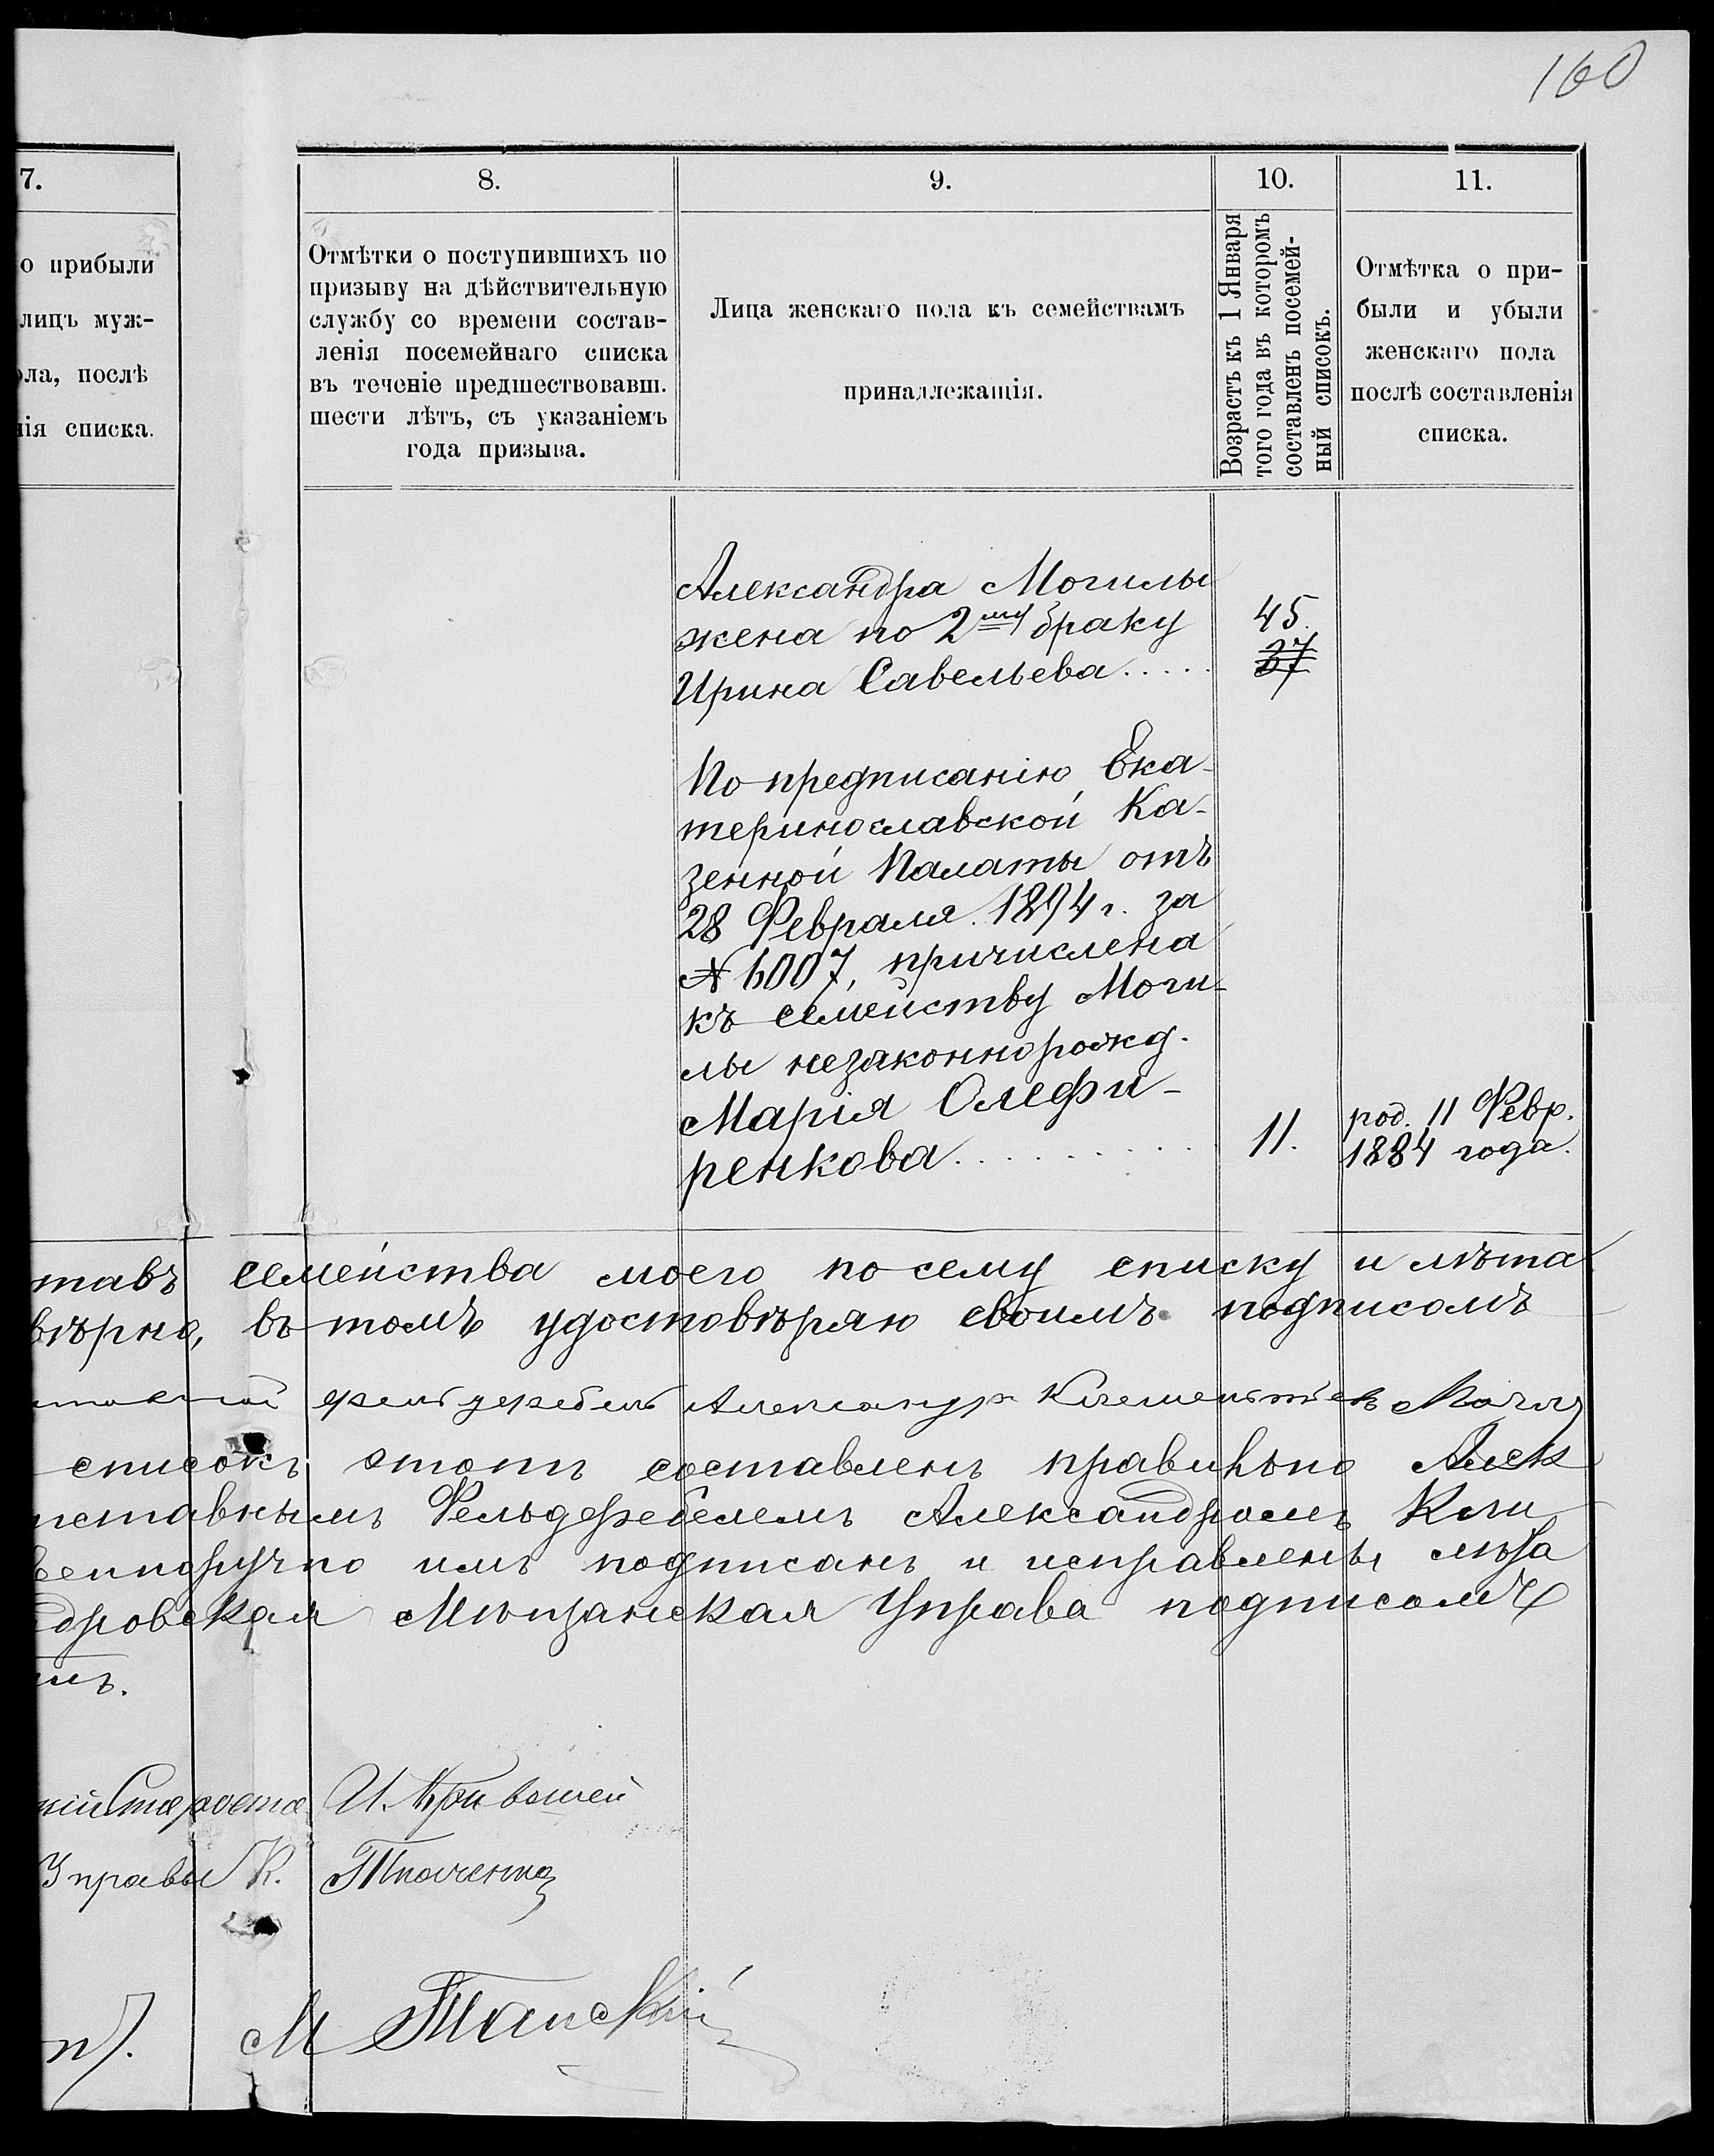 160
7.
8.
9.
10.
11.
о прибыли
лицъ муж-
ола, послѣ
нія списка.
Отмѣтки о поступившихъ по
призыву на дѣйствительную
службу со времени состав-
ленія посемейнаго списка
въ теченіе предшествовавш.
шести лѣтъ, съ указаніемъ
года призыва.
Лица женскаго пола къ семействамъ
принадлежащія.
Возрастъ къ 1 Января
того года въ которомъ
составленъ посемей-
ный списокъ.
Отмѣтка о при-
были и убыли
женскаго пола
послѣ составленія
списка.
Александра Могилы
жена по 2му браку
Ирина Савельева.....
45.
37
По предписанію Ека-
теринославской Ка-
зенной Палаты отъ
28 Февраля 1894 г. за
№ 6007, причислена
къ семейству Моги-
лы незаконнорожд.
Марія Олефи-
ренкова..........
11.
род. 11 Февр.
1884 года.
тавъ семейства моего по сему списку и лѣта
вѣрно, въ томъ удостовѣряю своимъ подписомъ
фельдфебель Александр
списокъ этотъ составленъ правильно Алек
тставнымъ Фельдфебелемъ Александромъ
веннοручно имъ подписанъ и исправлены лѣта
дровская Мѣщанская Управа подписомъ
мъ.
Староста И.
Управы К. Ткаченко
М